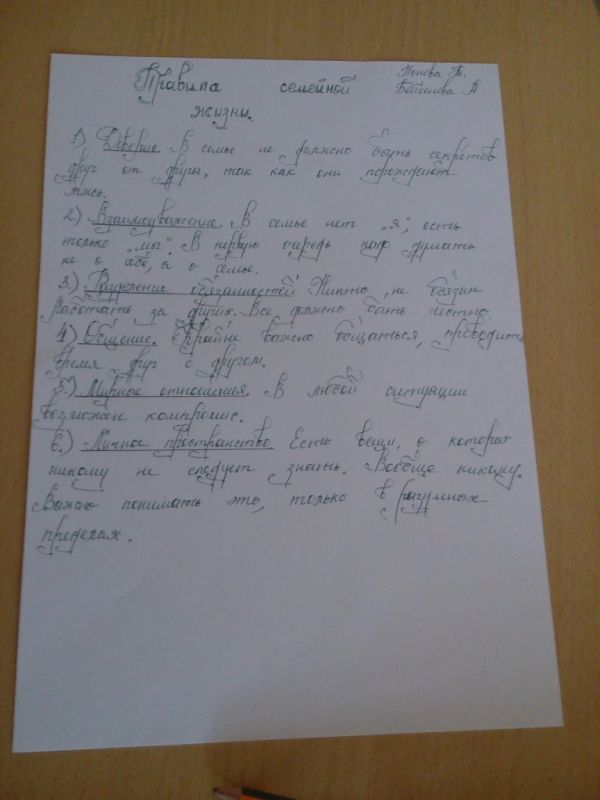 Правила семейной
жизни.
Попова Т.
А
1.) Доверие. В семье не должно быть секретов
друг от друга, так как они порождают
ложь.
2.) Взаимоуважение. В семье нет „я“, есть
только „мы“. В первую очередь надо думать
не о себе, а о семье.
3.) Разделение обязанностей. Никто не обязан
работать за других. Все должно быть честно.
4) Общение. Крайне важно общаться, проводить
время друг с другом.
5.) Мирные отношения. В любой ситуации
возможен компромис.
6.) Личное пространство. Есть вещи, о которых
никому не следует знать. Вообще никому.
Важно понимать это, только в разумных
пределах.